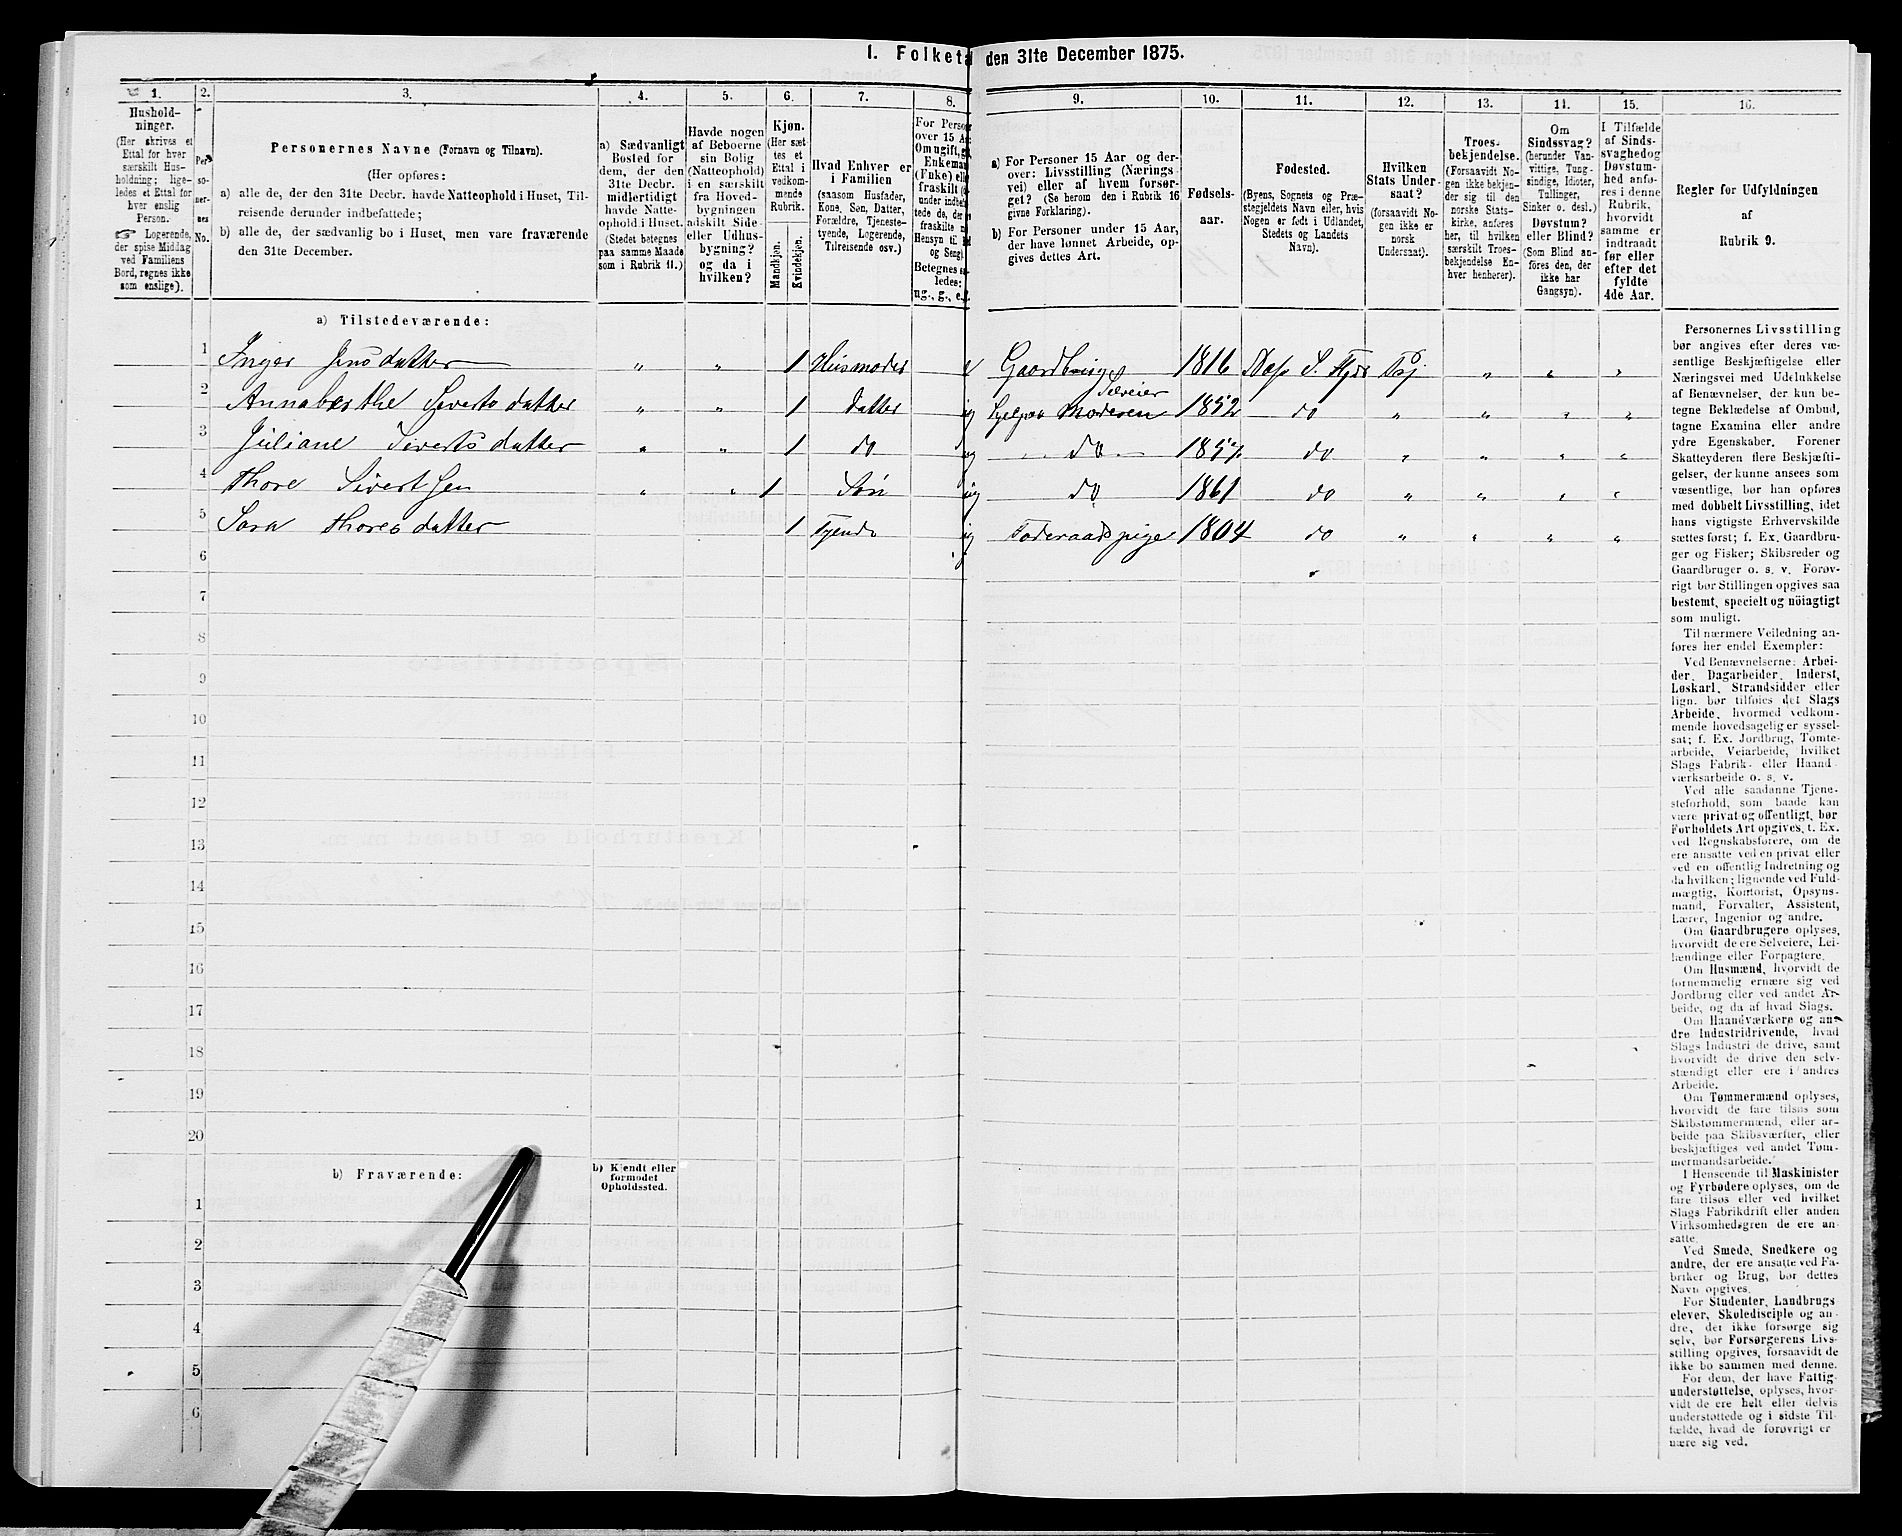 I. Folketa den 31te December 1875.
1. 2. 3. 4. 5. 6. 7. 8. 9. 10. 11. 12. 13. 14. 15. 16.
Hushold-
ninger.
(Her skrives et
Ettal for hver
særskilt Hus-
holdning; lige-
ledes et Ettal for
hver enslig
Person.
☞ Logerende,
der spise Middag
ved Familiens
Bord, regnes ikke
som enslige).
Per-
so-
ner-
nes
No.
Personernes Navne (Fornavn og Tilnavn).
(Her opføres:
a) alle de, der den 31te Decbr. havde Natteophold i Huset, Til-
reisende derunder indbefattede;
b) alle de, der sædvanlig bo i Huset, men vare fraværende
den 31te December.
a) Sædvanligt
Bosted for
dem, der den
31te Decbr.
midlertidigt
havde Natte-
ophold i Huset.
(Stedet betegnes
paa samme Maade
som i Rubrik 11.)
Havde nogen
af Beboerne
sin Bolig
(Natteophold)
i en særskilt
fra Hoved-
bygningen
adskilt Side-
eller Udhus-
bygning?
og da i
hvilken?
Kjøn.
(Her sæt-
tes et
Ettal i
vedkom-
mende
Rubrik.
Mandkjøn.
Kvindekjøn.
Hvad Enhver er
i Familien
(saasom Husfader,
Kone, Søn, Datter,
Forældre, Tjeneste-
tyende, Logerende,
Tilreisende osv.)
For Person
over 15 Aa
Om ugift, g
Enkeman
(Enke) ell
fraskilt (
under indbe
tede de, der
fraskilte
Hensyn til
og Seng).
Betegnes sa
ledes:
ug., g., e., f.
a) For Personer 15 Aar og der-
over: Livsstilling (Nærings-
vei) eller af hvem forsør-
get? (Se herom den i Rubrik 16
givne Forklaring).
b) For Personer under 15 Aar,
der have lønnet Arbeide, op-
gives dettes Art.
Fødsels-
aar.
Fødested.
(Byens, Sognets og Præ-
stegjeldets Navn eller, hvis
Nogen er født i Udlandet,
Stedets og Landets
Navn).
Hvilken
Stats Under-
saat?
(forsaavidt No-
gen ikke er
norsk
Undersaat).
Troes-
bekjendelse.
(Forsaavidt No-
gen ikke bekjen-
der sig til den
norske Stats-
kirke, anføres
her, til hvilken
særskilt Troes-
bekjendelse En-
hver henhører).
Om
Sindssvag?
(herunder Van-
vittige, Tung-
sindige, Idioter,
Tullinger,
Sinker o. desl.)
Døvstum?
eller Blind?
(Som Blind an-
føres den, der
ikke har
Gangsyn).
I Tilfælde
af Sinds-
svaghed og
Døvstum-
hed anfø-
res i denne
Rubrik,
hvorvidt
samme er
indtraadt
før eller
efter det
fyldte
4de Aar.
Regler for Udfyldningen
af
Rubrik 9.
a) Tilstedeværende:
1 Inger Jensdatter " " 1 Husmoder Gaardbrug 1816 S. 
Selveier
2 Annaberthe Sivertsdatter " " 1 datter ug Moderen 1852 do " " " "
3 Juliane Sivertsdatter " " 1 do ug do 1857 do " " " "
4 Thore Sivertsen " " 1 Søn ug do 1861 do " " " "
5 Sara Thoresdatter 1 Tyende ug Føderaadspige 1804 do " " " "
6
7
8
9
10
11
12
13
14
15
16
17
18
19
20
b) Fraværende:
b) Kjendt eller
formodet
Opholdssted.
1
2
3
4
5
6
Personernes Livsstilling
bør angives efter deres væ-
sentlige Beskjæftigelse eller
Næringsvei med Udelukkelse
af Benævnelser, der kun be-
tegne Beklædelse af Ombud,
tagne Examina eller andre
ydre Egenskaber. Forener
Skatteyderen flere Beskjæfti-
gelser, der kunne ansees som
væsentlige, bør han opføres
med dobbelt Livsstilling, idet
hans vigtigste Erhvervskilde
sættes først; f. Ex. Gaardbru-
ger og Fisker; Skibsreder og
Gaardbruger o. s. v. Forøv-
rigt bør Stillingen opgives saa
bestemt, specielt og nöiagtigt
som muligt.
Til nærmere Veiledning an-
føres her endel Exempler:
Ved Benævnelserne: Arbei-
der, Dagarbeider, Inderst,
Løskarl, Strandsidder eller
lign. bør tilføies det Slags
Arbeide, hvormed vedkom-
mende hovedsagelig er syssel-
sat; f. Ex. Jordbrug, Tomte-
arbeide, Veiarbeide, hvilket
Slags Fabrik- eller Haand-
værksarbeide o. s. v.
Ved alle saadanne Tjene-
steforhold, som baade kan
være privat og offentligt, bør
Forholdets Art opgives, t. Ex.
ved Regnskabsførere, om de
ere ansatte ved en privat eller
ved en offentlig Indretning og
da hvilken; lignende ved Fuld-
mægtig, Kontorist, Opsyns-
mand, Forvalter, Assistent,
Lærer, Ingeniør og andre.
Om Gaardbrugere oplyses,
hvorvidt de ere Selveiere, Lei-
lændinge eller Forpagtere.
Om Husmænd, hvorvidt de
fornemmelig ernære sig ved
Jordbrug eller ved andet Ar-
beide, og da af hvad Slags.
Om Haandværkere og an-
dre Industridrivende, hvad
Slags Industri de drive, samt
hvorvidt de drive den selv-
stændigt eller ere i andres
Arbeide.
Om Tømmermænd oplyses,
hvorvidt de fare tilsøs som
Skibstømmermænd, eller ar-
beide paa Skibsværfter, eller
beskjæftiges ved andet Tøm-
mermandsarbeide.
I Henseende til Maskinister
og Fyrbødere oplyses, om de
fare tilsøs eller ved hvilket
Slags Fabrikdrift eller anden
Virksomhedsgren de ere an-
satte.
Ved Smede, Snedkere og
andre, der ere ansatte ved Fa-
briker og Brug, bør dettes
Navn opgives.
For Studenter, Landbrugs-
elever, Skoledisciple og an-
dre, der ikke forsørge sig
selv, bør Forsørgerens Livs-
stilling opgives, forsaavidt de
ikke bo sammen med denne.
For dem, der have Fattig-
understøttelse, oplyses, hvor-
vidt de ere helt eller delvis
understøttede og i sidste Til-
fælde, hvad de forøvrigt er-
nære sig ved.